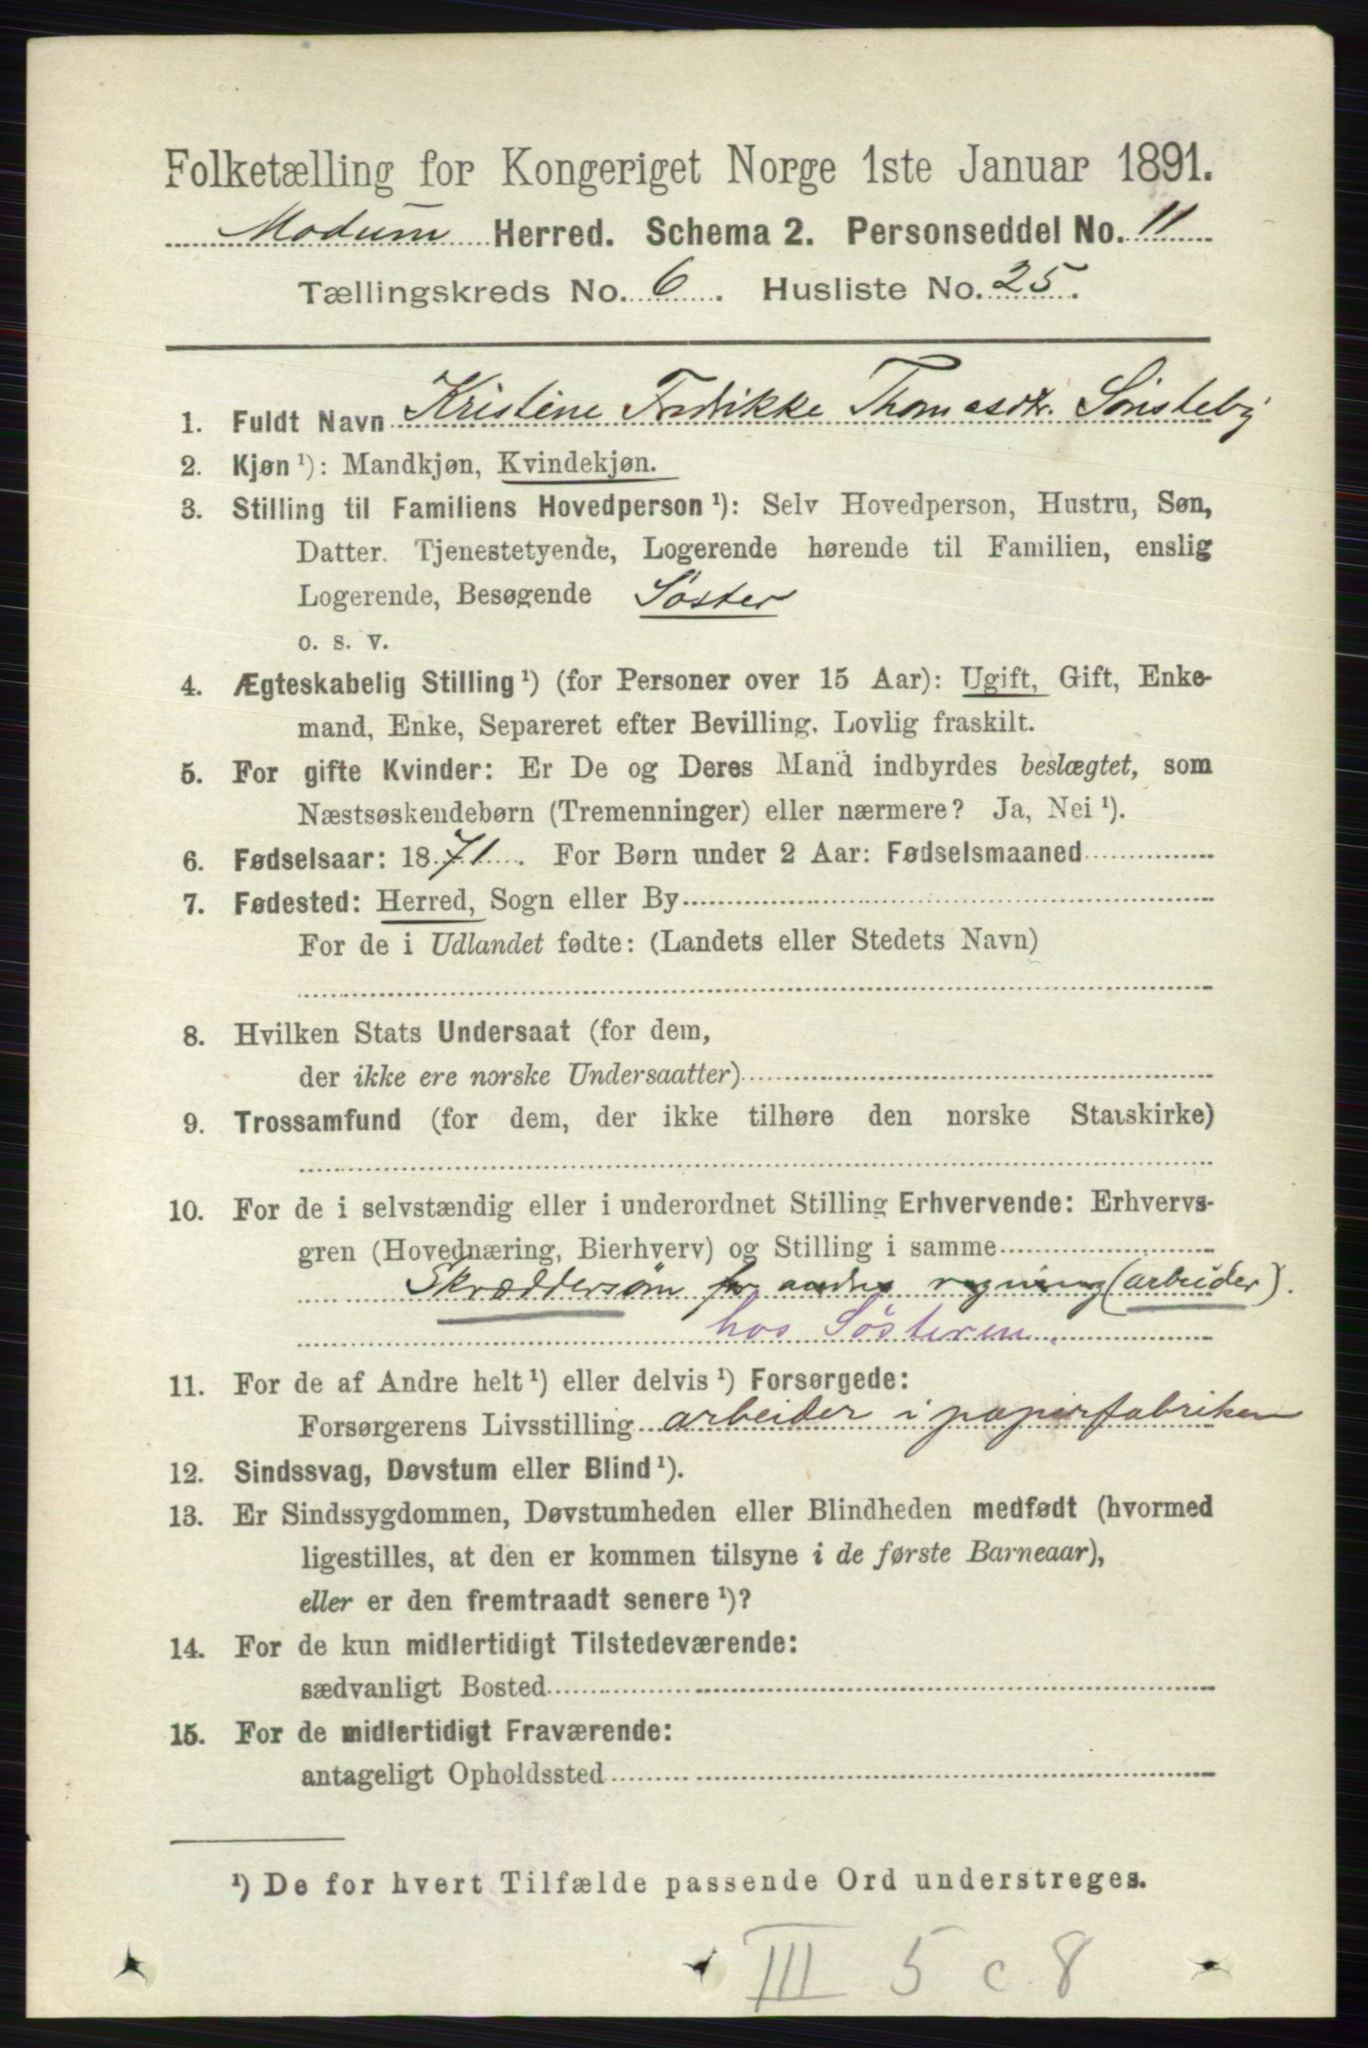 Folketælling for Kongeriget Norge 1ste Januar 1891.
Modum Herred. Schema 2. Personseddel No. 11
Tællingskreds No. 6. Husliste No. 25.
1. Fuldt Navn Kristine Fredrikke Thomasdtr. Sønsteby
2. Kjøn ¹): Mandkjøn, Kvindekjøn.
3. Stilling til Familiens Hovedperson ¹): Selv Hovedperson, Hustru, Søn,
Datter. Tjenestetyende, Logerende hørende til Familien, enslig
Logerende, Besøgende Søster
o. s. v.
4. Ægteskabelig Stilling ¹) (for Personer over 15 Aar): Ugift, Gift, Enke-
mand, Enke, Separeret efter Bevilling. Lovlig fraskilt.
5. For gifte Kvinder: Er De og Deres Mand indbyrdes beslægtet, som
Næstsøskendebørn (Tremenninger) eller nærmere? Ja, Nei ¹).
6. Fødselsaar: 1871. For Børn under 2 Aar: Fødselsmaaned
7. Fødested: Herred, Sogn eller By
For de i Udlandet fødte: (Landets eller Stedets Navn)
8. Hvilken Stats Undersaat (for dem,
der ikke ere norske Undersaatter)
9. Trossamfund (for dem, der ikke tilhøre den norske Statskirke)
10. For de i selvstændig eller i underordnet Stilling Erhvervende: Erhvervs-
gren (Hovednæring, Bierhverv) og Stilling i samme
Skræddersøm for andres regning (arbeider).
hos Søsteren.
11. For de af Andre helt ¹) eller delvis ¹) Forsørgede:
Forsørgerens Livsstilling arbeider i papirfabriken
12. Sindssvag, Døvstum eller Blind ¹).
13. Er Sindssygdommen, Døvstumheden eller Blindheden medfødt (hvormed
ligestilles, at den er kommen tilsyne i de første Barneaar),
eller er den fremtraadt senere ¹)?
14. For de kun midlertidigt Tilstedeværende:
sædvanligt Bosted
15. For de midlertidigt Fraværende:
antageligt Opholdssted
¹) De for hvert Tilfælde passende Ord understreges.
III 5 c 8